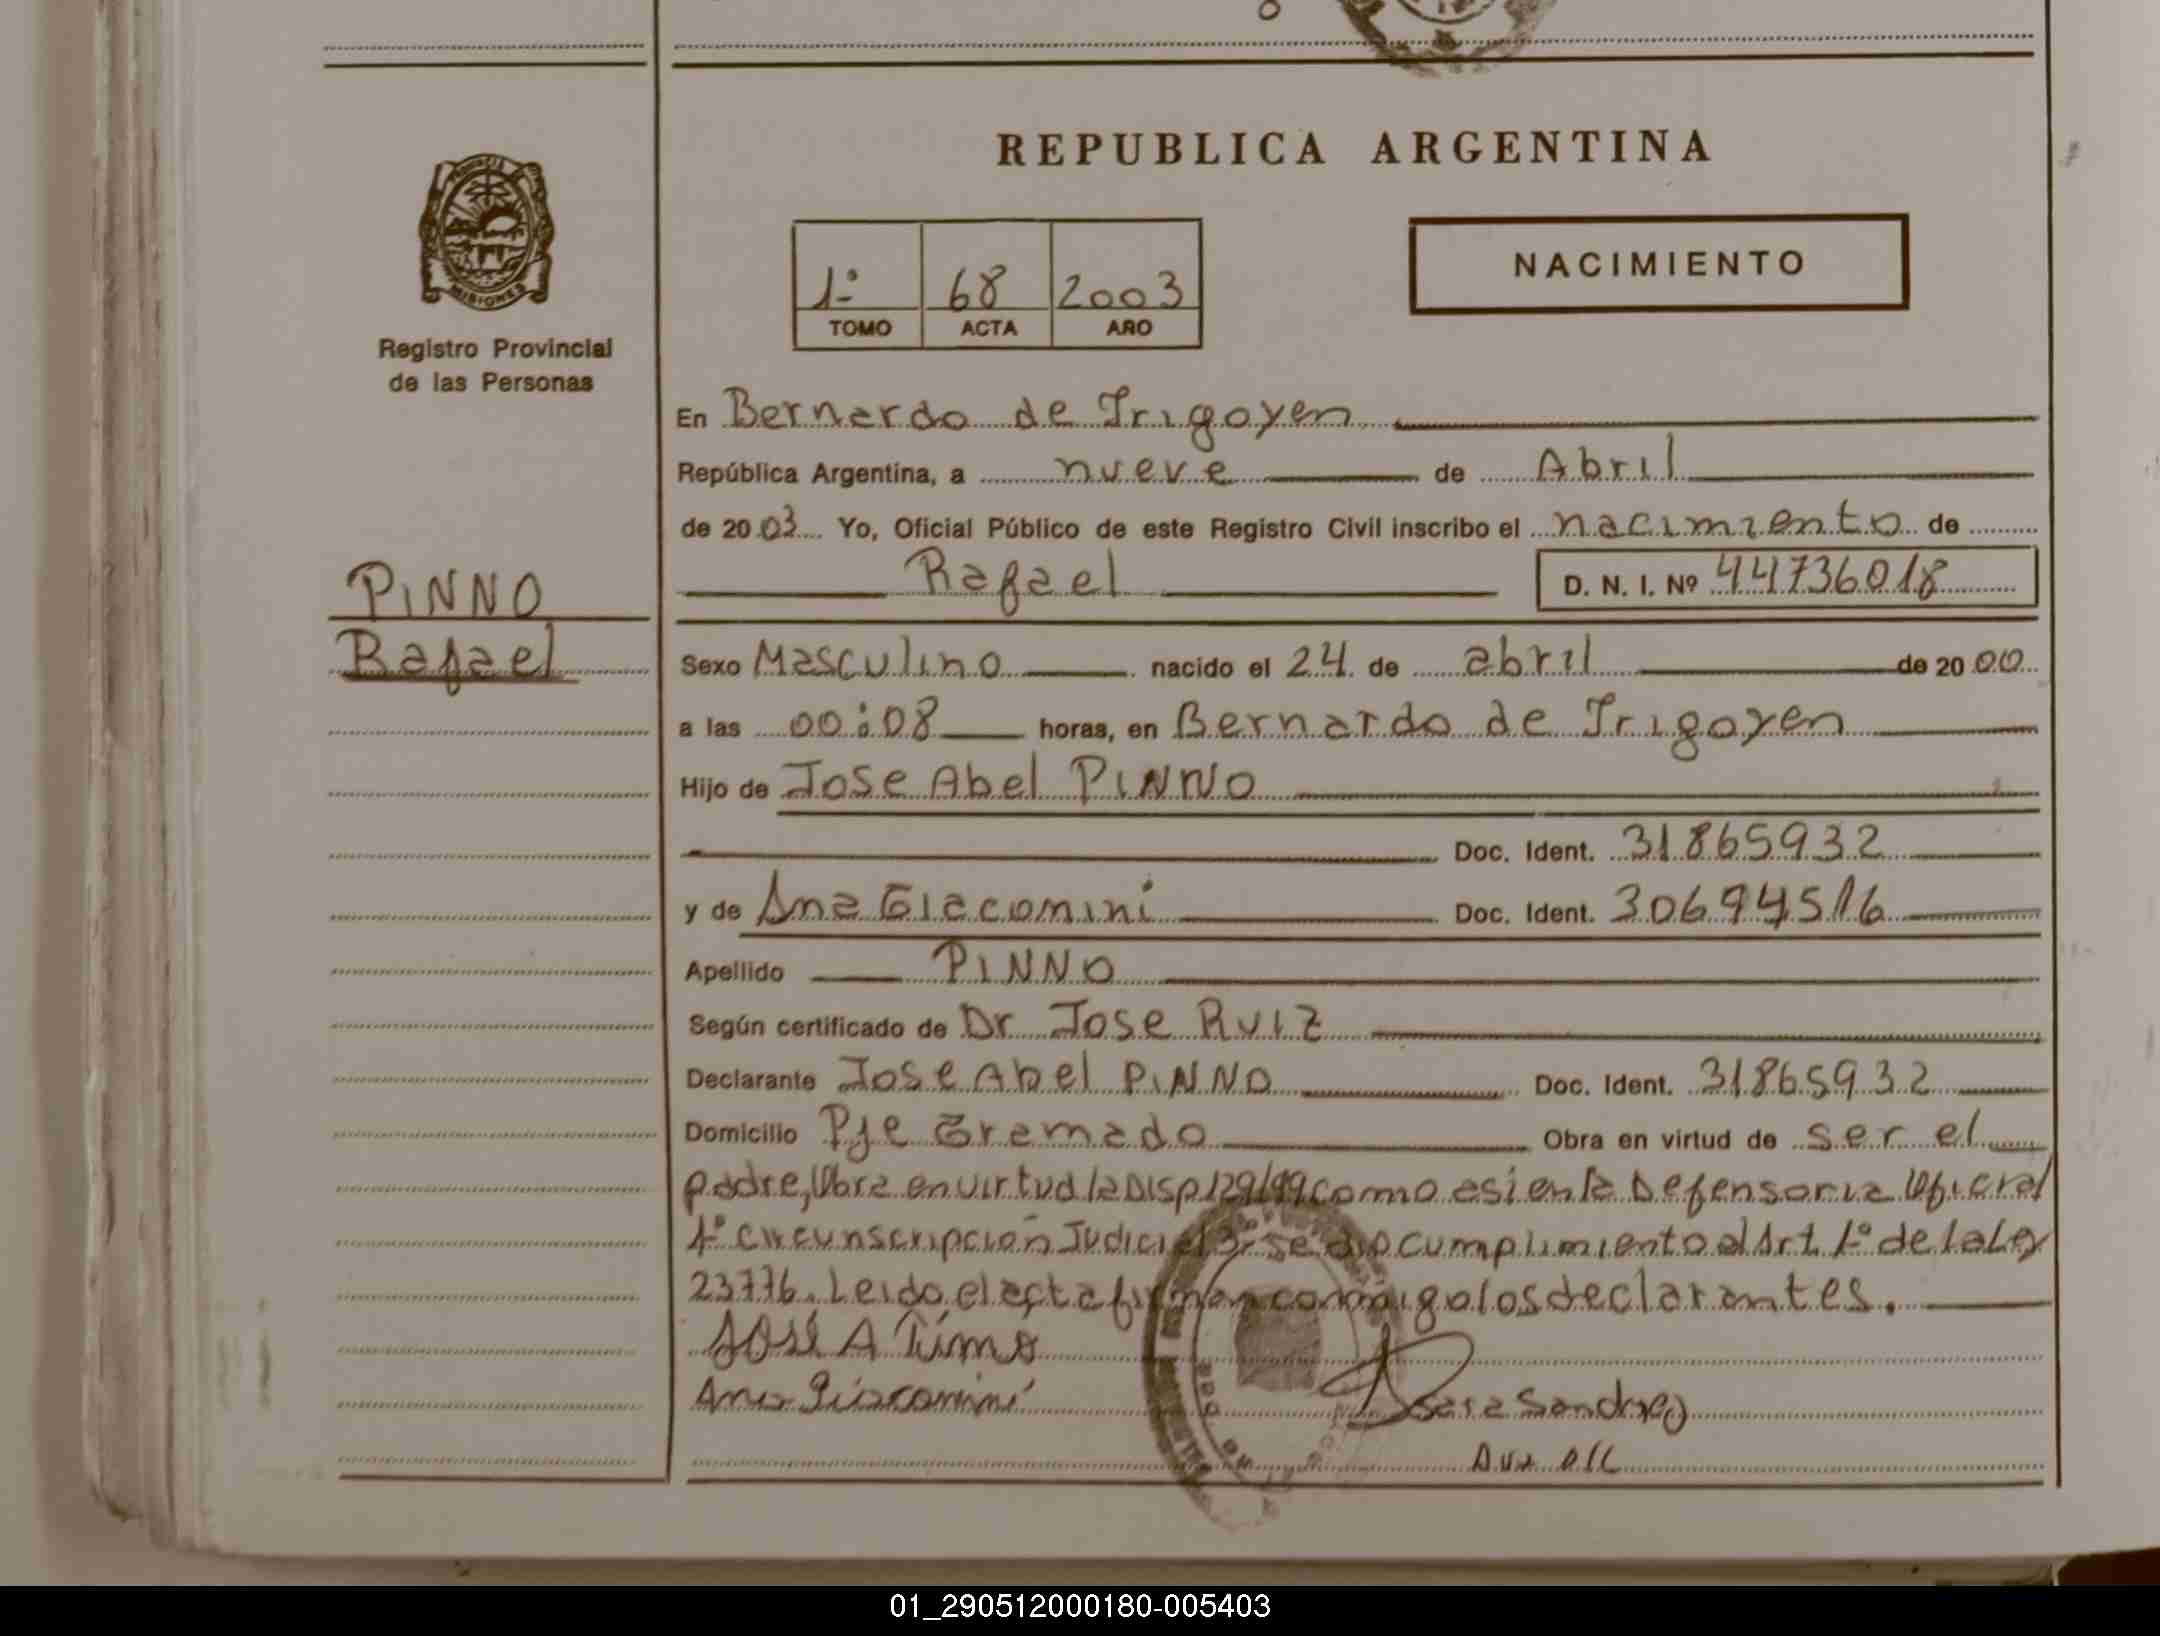 REPUBLICA ARGENTINA
PROVINCIA
MISIONES
Registro Provincial
de las Personas
1º 68 2003
TOMO ACTA AÑO
NACIMIENTO
En Bernardo de Irigoyen
República Argentina, a nueve de Abril
de 2003 Yo, Oficial Público de este Registro Civil inscribo el nacimiento de
Rafael D. N. I. Nº 44736018
PINNO
Rafael
Sexo Masculino nacido el 24 de abril de 2000
a las 00:08 horas, en Bernardo de Irigoyen
Hijo de Jose Abel PINNO
Doc. Ident. 31865932
y de Ana Giacomini Doc. Ident. 30694516
Apellido PINNO
Según certificado de Dr Jose Ruiz
Declarante Jose Abel PINNO Doc. Ident. 31865932
Domicilio Pje Gramado Obra en virtud de ser el
padre, Obra en virtud la Disp 129/99 como asi en la Defensoria Oficial
4º circunscripción Judicial 3. se dio cumplimiento al Art. 1º de la Ley
23776. Leido el acta firman conmigo los declarantes.
José A Pinno
Ana Giacomini
Sara Sandra
01_290512000180-005403